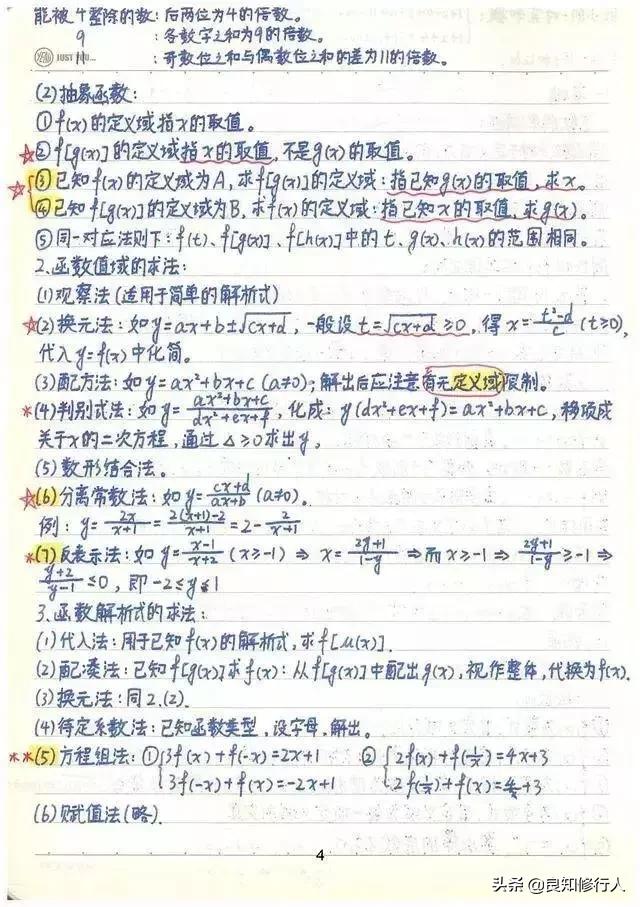 能被4整除的数:后两位为4的倍数。
9 :各数字之和为9的倍数。
JUST YOU... 11 :奇数位之和与偶数位之和的差为11的倍数。
(2)抽象函数:
①f(x)的定义域指x的取值。
☆②f[g(x)]的定义域指x的取值,不是g(x)的取值。
☆③已知f(x)的定义域为A,求f[g(x)]的定义域:指已知g(x)的取值,求x。
④已知f[g(x)]的定义域为B,求f(x)的定义域:指已知x的取值,求g(x)。
⑤同一对应法则下:f(t)、f[g(x)]、f[h(x)]中的t、g(x)、h(x)的范围相同。
2.函数值域的求法:
(1)观察法(适用于简单的解析式)
☆(2)换元法:如y=ax+b±√(cx+d),一般设t=√(cx+d)≥0,得x=(t²-d)/c(t≥0),
代入y=f(x)中化简。
(3)配方法:如y=ax²+bx+c(a≠0);解出后应注意有无定义域限制。
*(4)判别式法:如y=(ax²+bx+c)/(dx²+ex+f),化成:y(dx²+ex+f)=ax²+bx+c,移项成
关于x的二次方程,通过△≥0求出y。
(5)数形结合法。
☆(6)分离常数法:如y=(cx+d)/(ax+b)(a≠0)。
例:y=2x/(x+1)=(2(x+1)-2)/(x+1)=2-2/(x+1)
*(7)反表示法:如y=(x-1)/(x+2)(x≥-1)⇒x=(2y+1)/(1-y)⇒而x≥-1⇒(2y+1)/(1-y)≥-1⇒
(y+2)/(y-1)≤0,即-2≤y<1
3.函数解析式的求法:
(1)代入法:用于已知f(x)的解析式,求f[μ(x)].
(2)配凑法:已知f[g(x)]求f(x):从f[g(x)]中配出g(x),视作整体,代换为f(x).
(3)换元法:同2.(2).
(4)待定系数法:已知函数类型,设字母,解出。
**(5)方程组法:①{3f(x)+f(-x)=2x+1 ②{2f(x)+f(1/x)=4x+3
3f(-x)+f(x)=-2x+1 2f(1/x)+f(x)=4/x+3
(6)赋值法(略).
4
头条@良知修行人